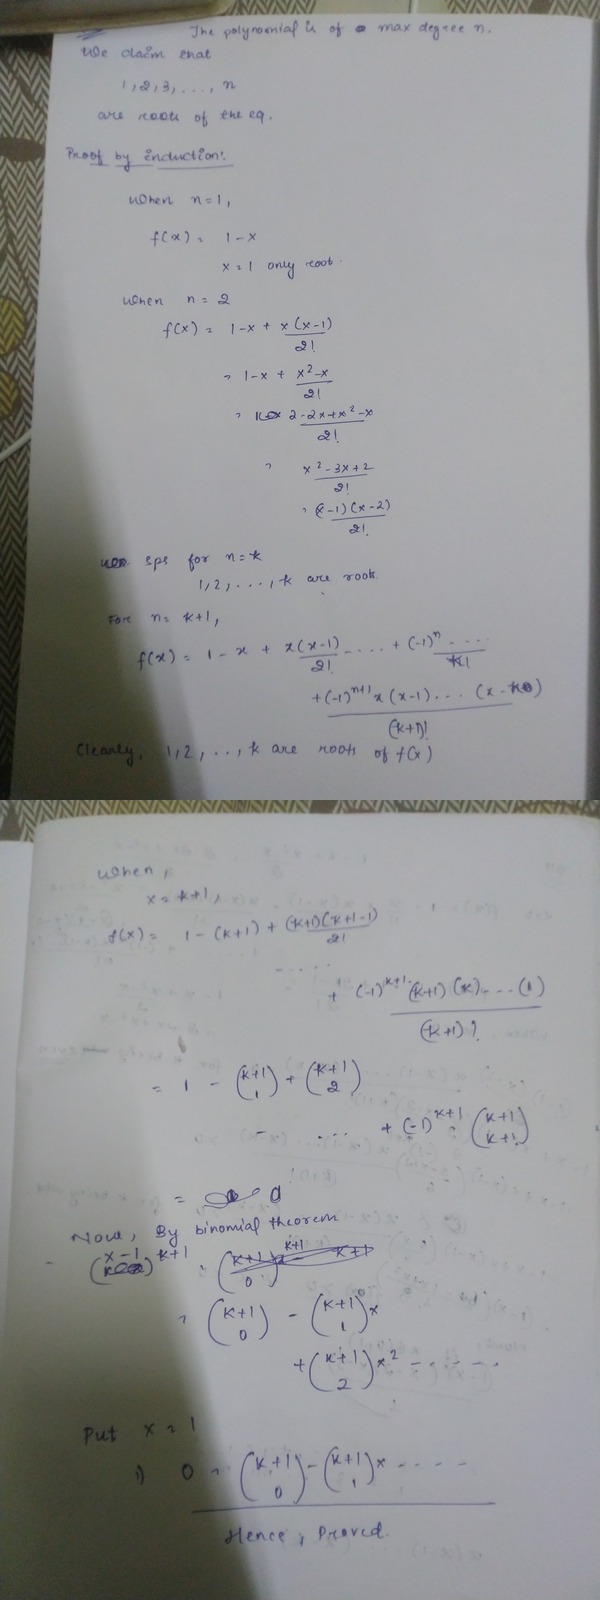 The polynomial is of max degree n.
We claim that
1, 2, 3, ..., n
are roots of the eq.
Proof by induction:
When n=1,
f(x) = 1-x
x=1 only root.
when n=2
f(x) = 1-x + x(x-1)/2!
= 1-x + x²-x/2!
= 2-2x+x²-x/2!
= x²-3x+2/2!
= (x-1)(x-2)/2!
sps for n=k
1, 2, ..., k are root.
For n= k+1,
f(x) = 1-x + x(x-1)/2! .... + (-1)ⁿ ..../k!
+(-1)ⁿ⁺¹ x(x-1)... (x-k)/(k+1)!
Clearly, 1,2, .., k are roots of f(x)
When,
x = k+1,
f(x) = 1-(k+1) + (k+1)(k+1-1)/2!
.....
+ (-1)^(k+1) (k+1)(k)....(1)/(k+1)!
= 1 - (k+1 1) + (k+1 2)
- .... + (-1)^(k+1) (k+1 k+1)
= 0
Now, By binomial theorem
(x-1)^(k+1)
= (k+1 0) - (k+1 1)x
+ (k+1 2)x² - - - - -
Put x = 1
0 = (k+1 0) - (k+1 1)x - - - -
Hence, Proved.